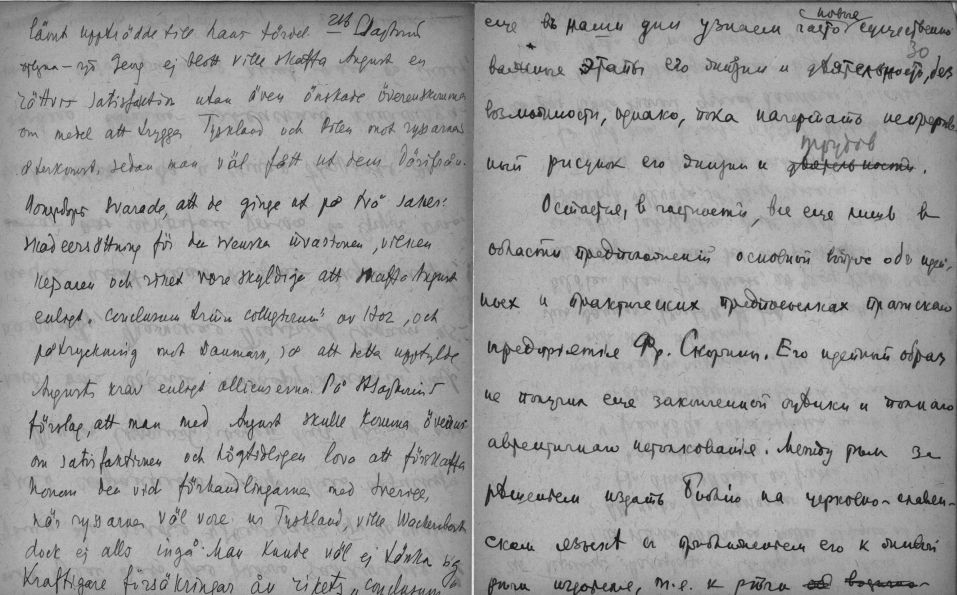 lämt uppträdde till hans fördel. 216 Stasjerins
ej blott ville skaffa August en
rättvis satisfaktion utan även önskade överenskomma
om medel att trygga Tyskland och Polen mot ryssarnas
återkomst, sedan man väl fått ut dem
svarade, att de ginge ut på två saker:
skadeersättning för den svenska invasionen, vilken
kejsaren och riket vore skyldiga att skaffa August
enligt "conclusum trium collegiorum" av 1702, och
påtryckning mot Danmark, så att detta uppfyllde
Augusts krav enligt allianserna. På
förslag, att man med August skulle komma överens
om satisfaktionen och högtidligen lova att förskaffa
honom den vid förhandlingarna med Sverige,
när ryssarna väl vore ur Tyskland, ville Wackerbarth
dock ej alls ingå. Man kunde väl ej tänka sig
Kraftigare försäkringar än rikets "conclusum
еще въ наши дни узнаем часто новые существенно
30
важные этапы его жизни и деятельности, без
возможности, однако, пока начертать непрерыв-
ный рисунок его жизни и трудов деятельности.
Остается, в частности, все еще лишь в
области предположений основной вопрос об идей-
ных и практических предпосылках пражскаго
предприятия Фр. Скорины. Его идейный образ
не получил еще законченной и полнаго
аутентичнаго истолкования. Между тем за
решением издать Библию на церковно-славян-
ском языке и приближением его к живой
речи издателя, т.е. к речи